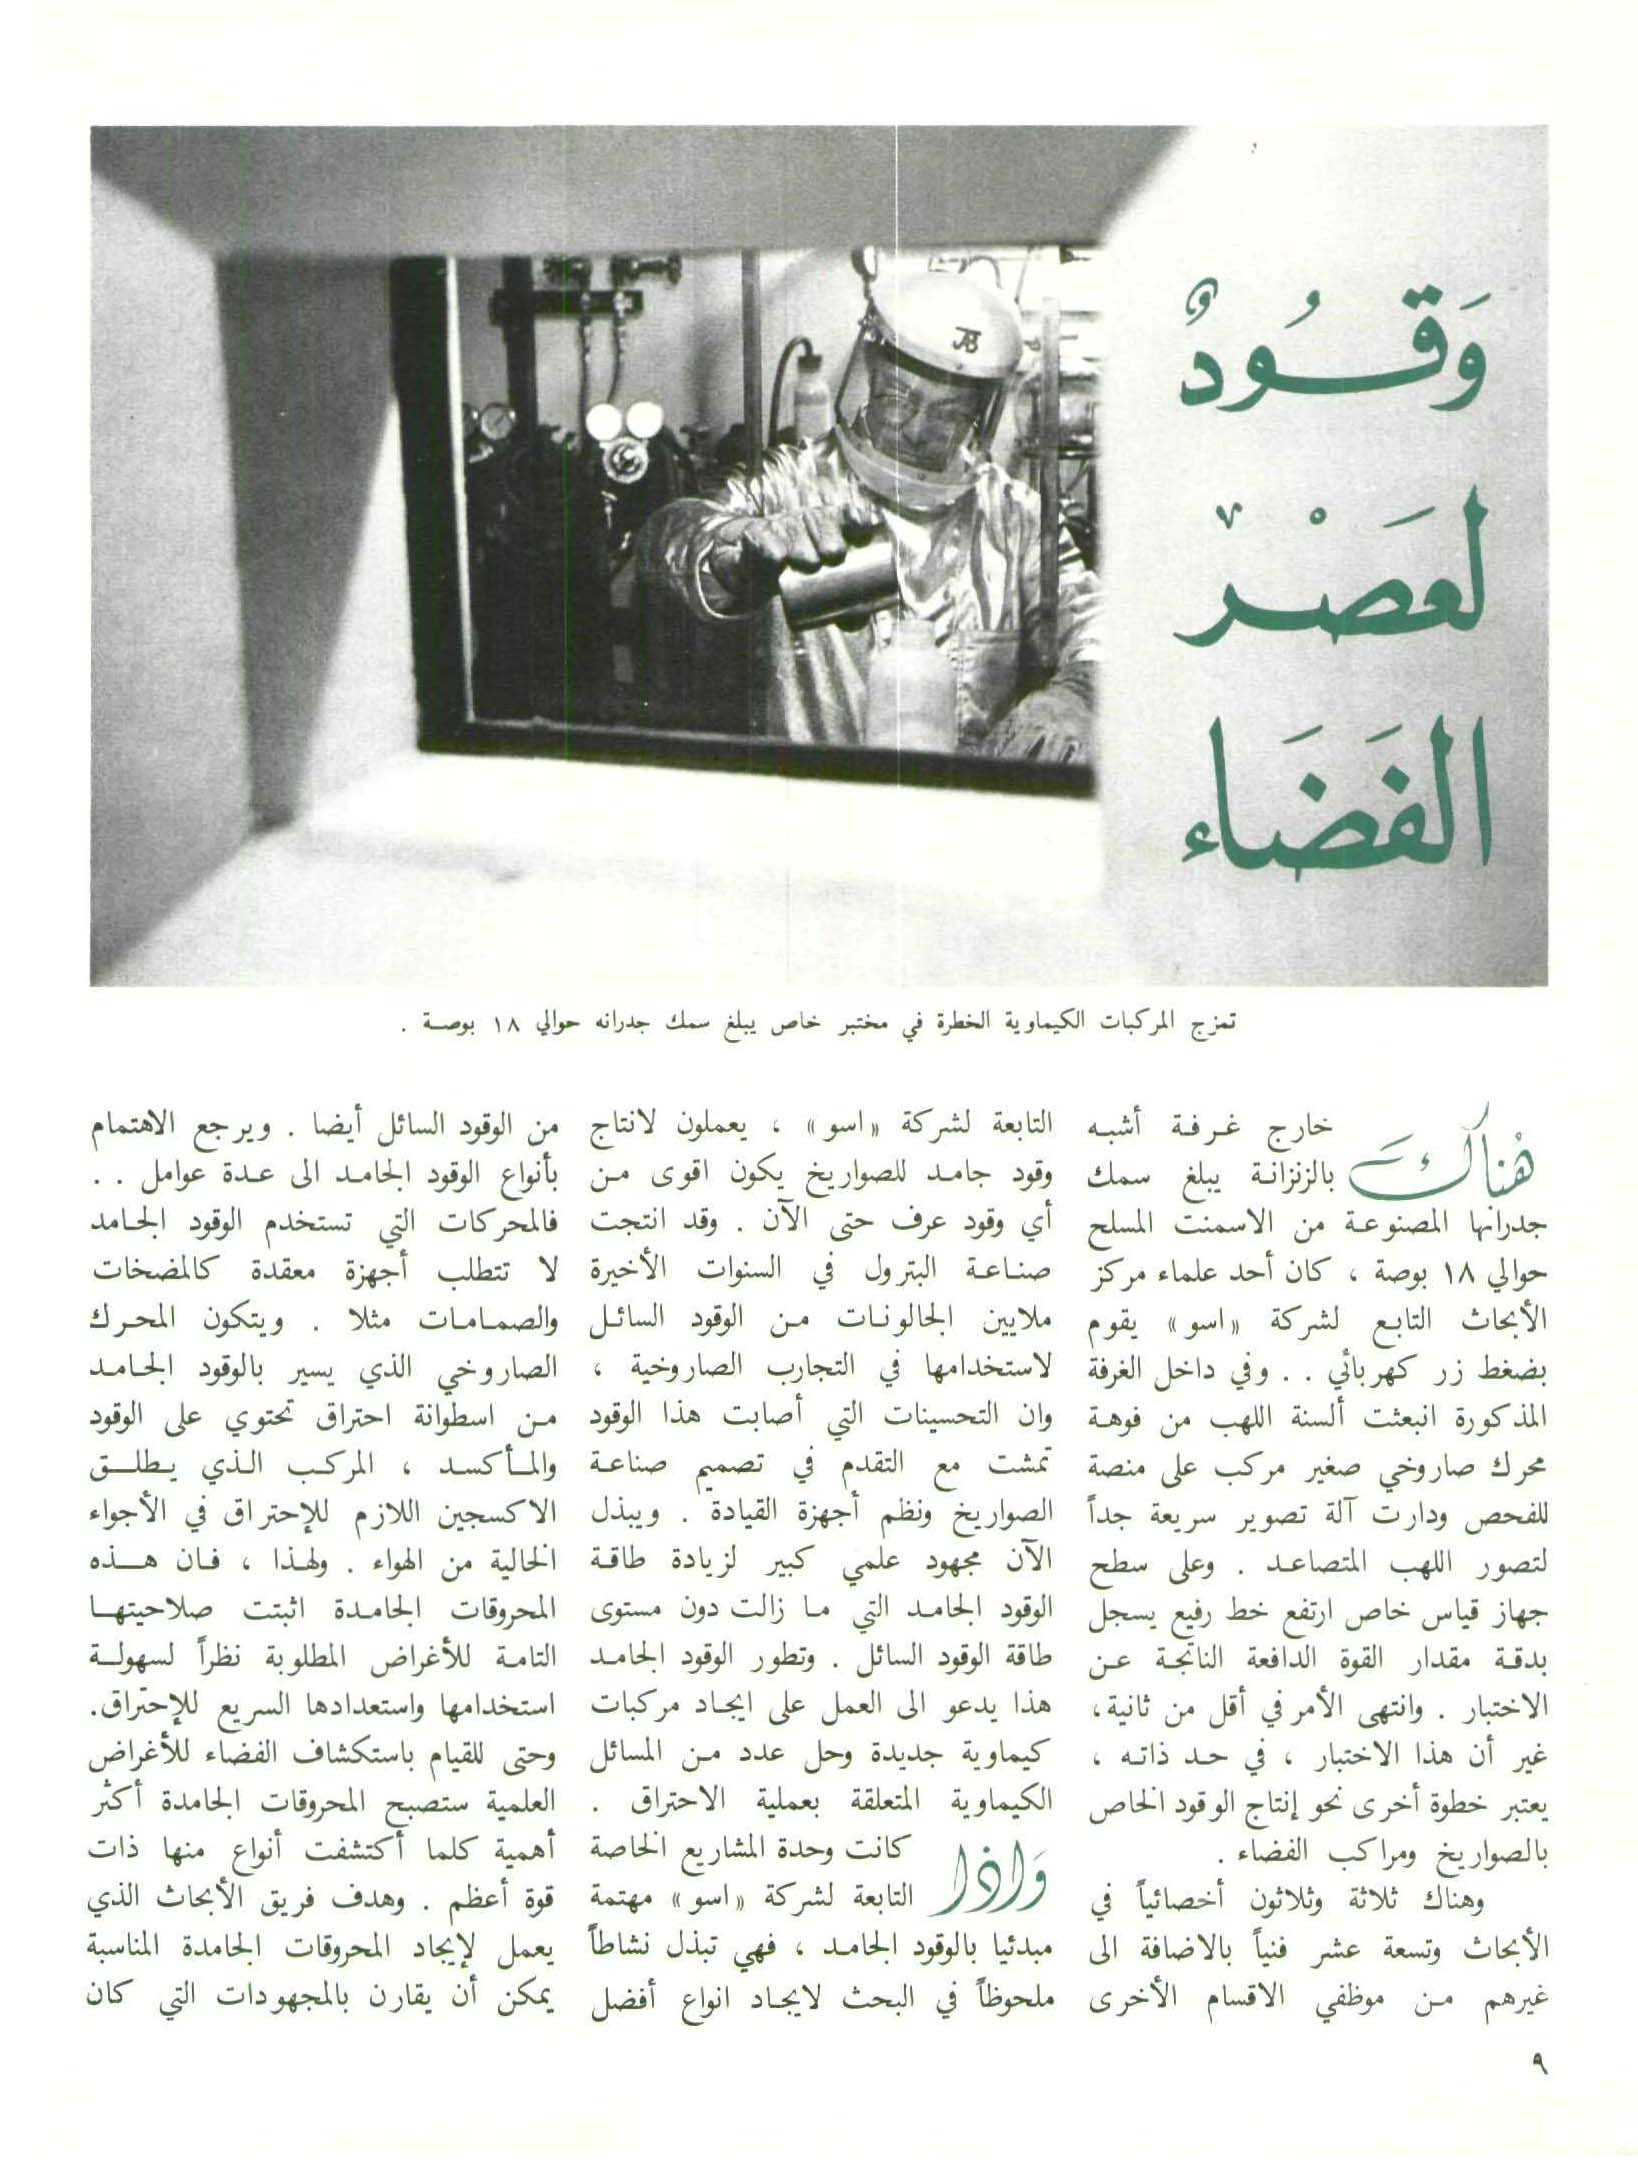 وَقُودٌ
لعَصْر
الفَضَاء
تمزج المركبات الكيماوية الخطرة في مختبر خاص يبلغ سمك جدرانه حوالي ١٨ بوصة .
هُناك خارج غرفة أشبه
بالزنزانة يبلغ سمك
جدرانها المصنوعة من الاسمنت المسلح
حوالي ١٨ بوصة ، كان أحد علماء مركز
الأبحاث التابع لشركة «اسو» يقوم
بضغط زر كهربائي . . وفي داخل الغرفة
المذكورة انبعثت ألسنة اللهب من فوهة
محرك صاروخي صغير مركب على منصة
للفحص ودارت آلة تصوير سريعة جداً
لتصور اللهب المتصاعد . وعلى سطح
جهاز قياس خاص ارتفع خط رفيع يسجل
بدقة مقدار القوة الدافعة الناتجة عن
الاختبار . وانتهى الأمر في أقل من ثانية،
غير أن هذا الاختبار ، في حد ذاته ،
يعتبر خطوة أخرى نحو إنتاج الوقود الخاص
بالصواريخ ومراكب الفضاء .
وهناك ثلاثة وثلاثون أخصائياً في
الأبحاث وتسعة عشر فنياً بالاضافة الى
غيرهم من موظفي الاقسام الأخرى
التابعة لشركة «اسو» ، يعملون لانتاج
وقود جامد للصواريخ يكون اقوى من
أي وقود عرف حتى الآن . وقد انتجت
صناعة البترول في السنوات الأخيرة
ملايين الجالونات من الوقود السائل
لاستخدامها في التجارب الصاروخية ،
وان التحسينات التي أصابت هذا الوقود
تمشت مع التقدم في تصميم صناعة
الصواريخ ونظم أجهزة القيادة . ويبذل
الآن مجهود علمي كبير لزيادة طاقة
الوقود الجامد التي ما زالت دون مستوى
طاقة الوقود السائل . وتطور الوقود الجامد
هذا يدعو الى العمل على ايجاد مركبات
كيماوية جديدة وحل عدد من المسائل
الكيماوية المتعلقة بعملية الاحتراق .
وَاذا كانت وحدة المشاريع الخاصة
التابعة لشركة «اسو» مهتمة
مبدئيا بالوقود الجامد ، فهي تبذل نشاطاً
ملحوظاً في البحث لايجاد انواع أفضل
من الوقود السائل أيضا . ويرجع الاهتمام
بأنواع الوقود الجامد الى عدة عوامل . .
فالمحركات التي تستخدم الوقود الجامد
لا تتطلب أجهزة معقدة كالمضخات
والصمامات مثلا . ويتكون المحرك
الصاروخي الذي يسير بالوقود الجامد
من اسطوانة احتراق تحتوي على الوقود
والمأكسد ، المركب الذي يطلق
الاكسجين اللازم للإحتراق في الأجواء
الخالية من الهواء . ولهذا ، فان هذه
المحروقات الجامدة اثبتت صلاحيتها
التامة للأغراض المطلوبة نظراً لسهولة
استخدامها واستعدادها السريع للإحتراق.
وحتى للقيام باستكشاف الفضاء للأغراض
العلمية ستصبح المحروقات الجامدة أكثر
أهمية كلما أكتشفت أنواع منها ذات
قوة أعظم . وهدف فريق الأبحاث الذي
يعمل لإيجاد المحروقات الجامدة المناسبة
يمكن أن يقارن بالمجهودات التي كان
٩